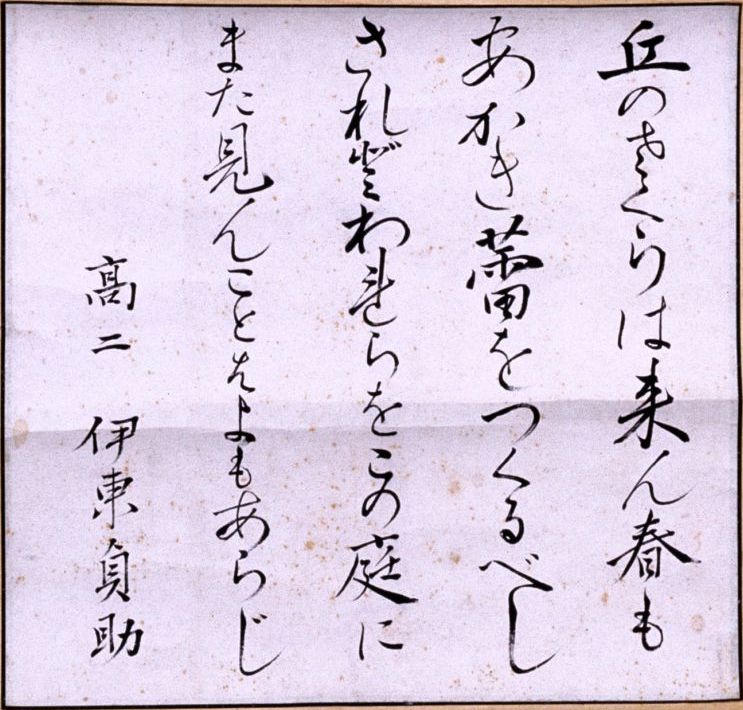 丘のさくらは来ん春も
あかき蕾をつくるべし
されどわれらをこの庭に
また見んことはよもあらじ
高二 伊東貞助